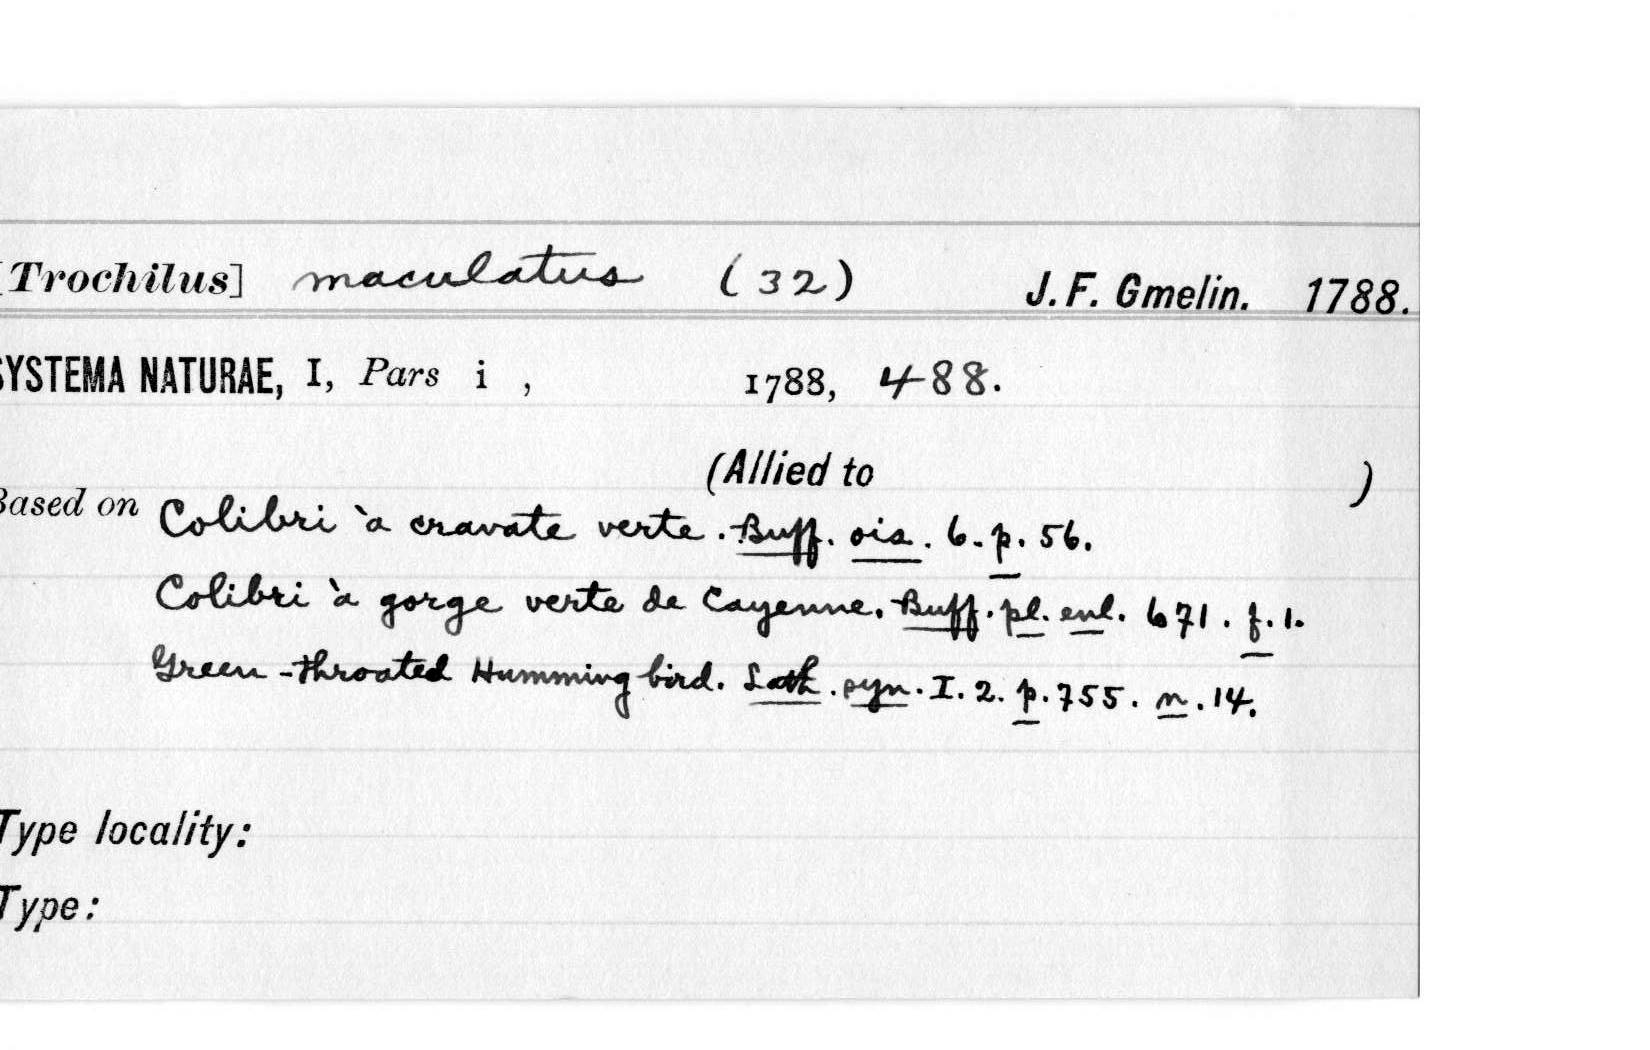 [Trochilus] maculatus (32) J. F. Gmelin. 1788.
SYSTEMA NATURAE, I, Pars i , 1788, 488.
(Allied to )
Based on Colibri à cravate verte. Buff. ois. 6. p. 56.
Colibri à gorge verte de Cayenne. Buff. pl. enl. 671. f. 1.
Green-throated Humming bird. Lath. syn. I. 2. p. 755. n. 14.
Type locality:
Type: